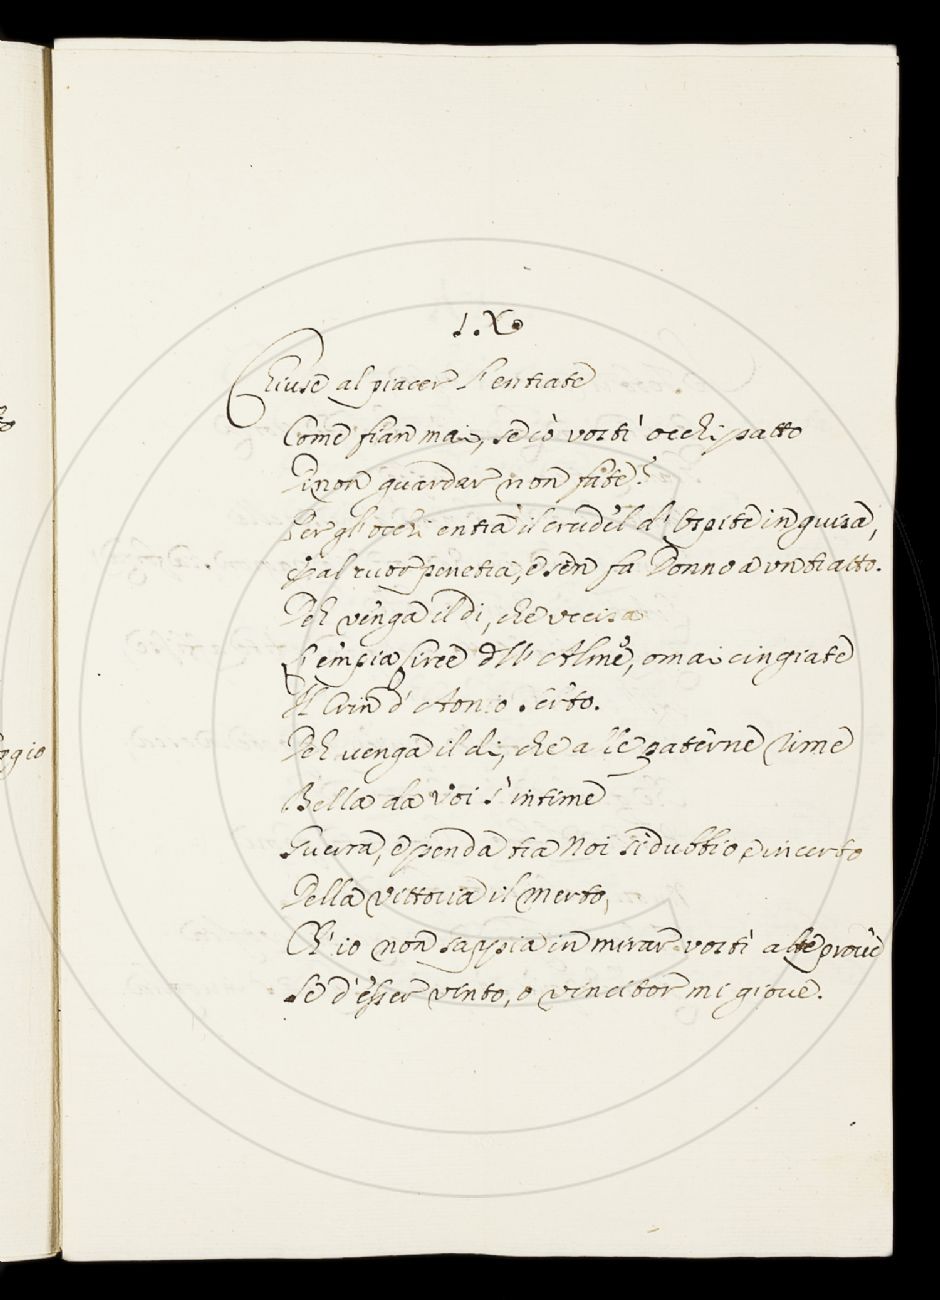 IX.
Chiuse al piacer l'entrate
Come fian mai, se cò vostri occhi patto
Di non guardar non fate?
Per gl'occhi entra il crudel d'Ospite in guisa,
al cuor penetra, e sen fa Donno a un tratto.
Deh venga il dì, che uccisa
L'empia siree dell'Alme, omai cingiate
Il Crin d'Aonio serto.
Deh venga il dì, che alle paterne rime
Bella da Voi s'intime
Guerra, e penda tra Noi sì dubbio, e incerto
Della vittoria il merto,
Ch'io non sappia in mirar vostri alte prove
Se d'esser vinto, o vincitor mi giove.
ggio